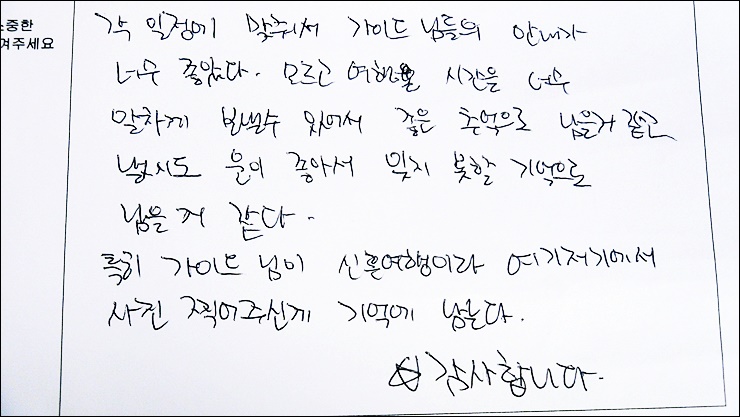 소중한
겨주세요
각 일정에 맞춰서 가이드님들의 안내가
너무 좋았다. 모르고 여행올 시간을 너무
알차게 보낼수 있어서 좋은 추억으로 남을거 같고
날시도 운이 좋아서 잊지 못할 기억으로
남을 거 같다.
특히 가이드님이 신혼여행이라 여기저기에서
사진 찍어주신게 기억에 남는다.
감사합니다.